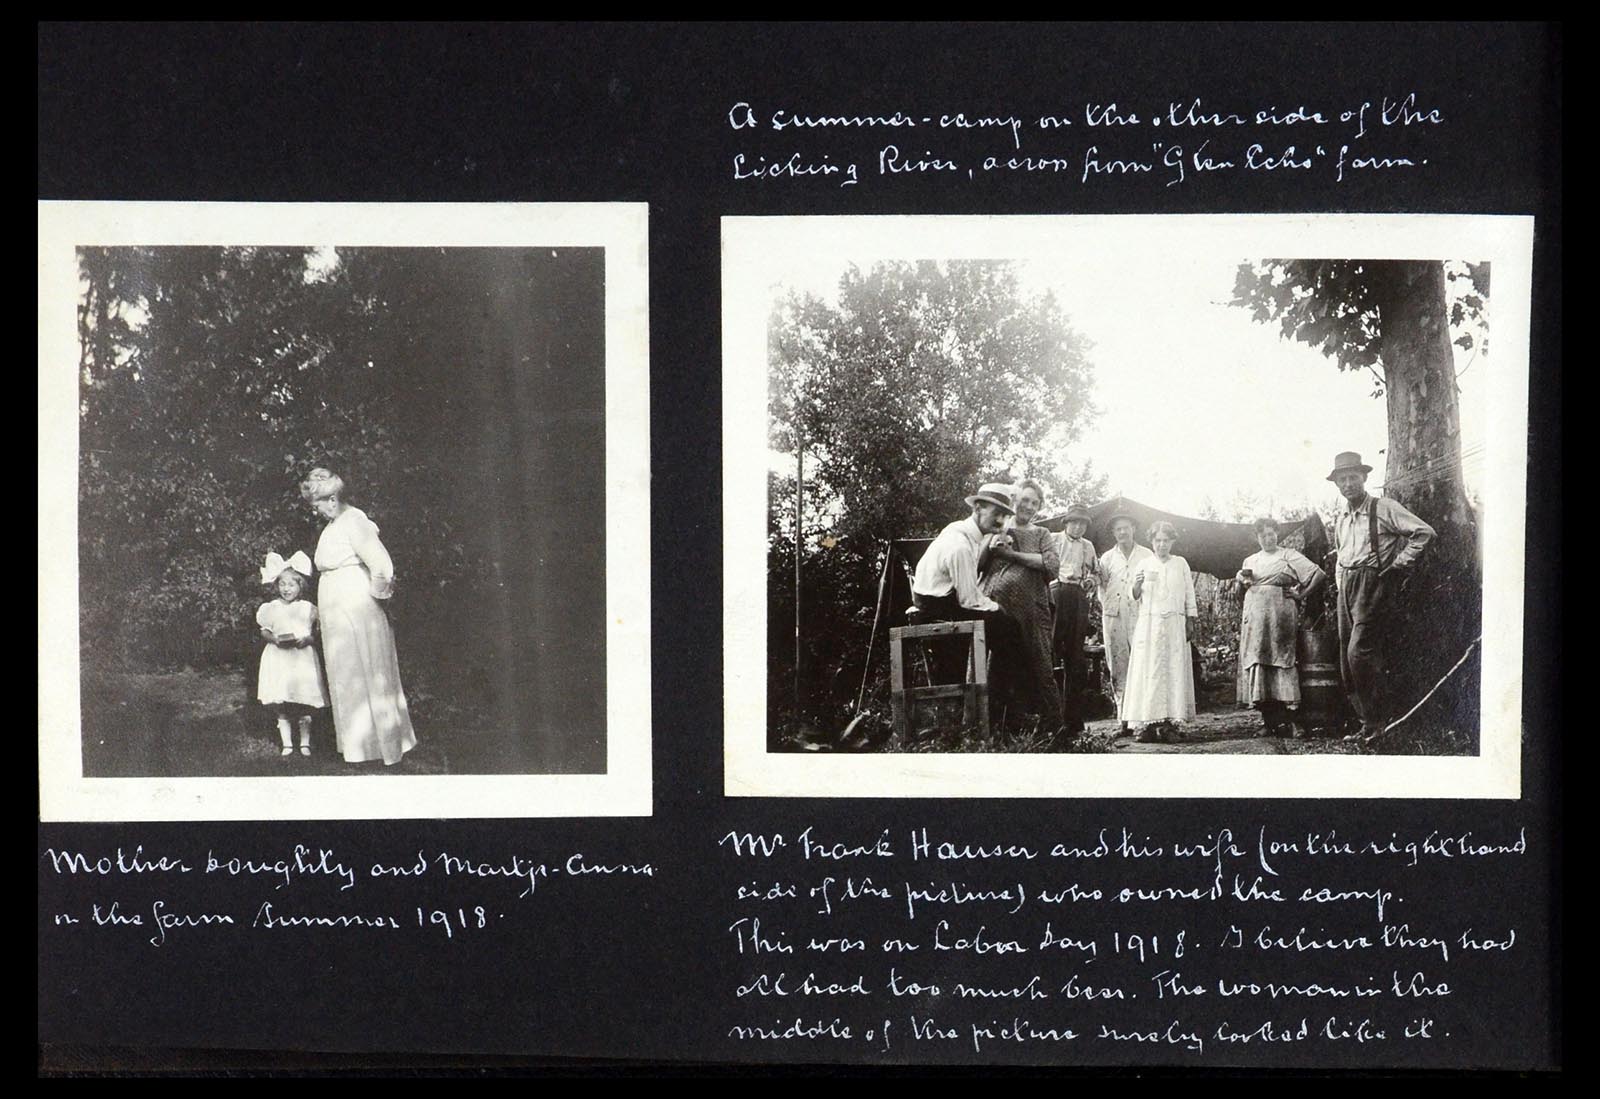 A summer-camp on the other side of the
Licking River, across from "Glen Echo" farm.
Mother Doughity and Martje-Anna
on the farm Summer 1918.
Mr Frank Hauser and his wife (on the right hand
side of the picture) who owned the camp.
This was on Labor Day 1918. I believe they had
all had too much beer. The woman in the
middle of the picture surely looked like it.